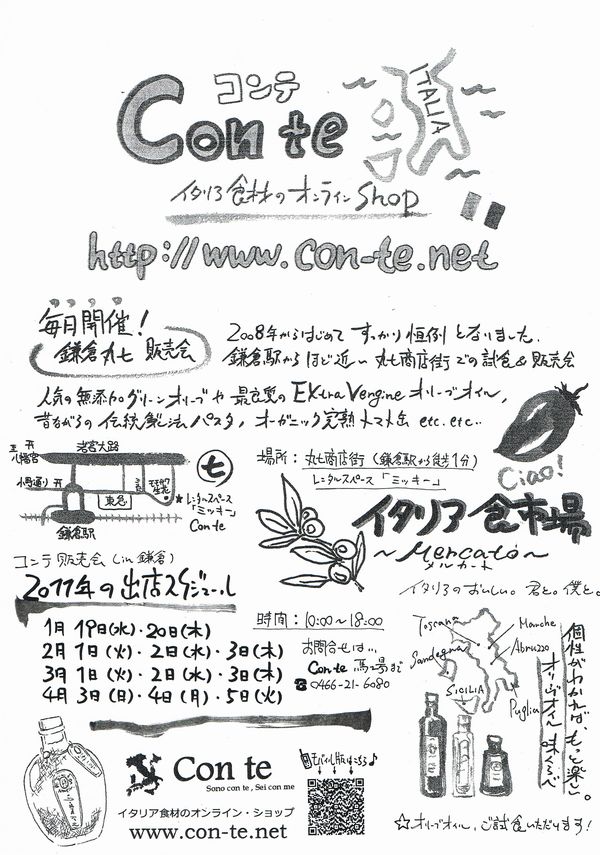 コンテ
Con te
ITALIA
イタリア食材のオンラインShop
http://www.con-te.net
毎月開催!
鎌倉丸七 販売会
2008年からはじめて すっかり恒例となりました。
鎌倉駅からほど近い 丸七商店街での試食&販売会
人気の無添加グリーンオリーブや 最良質のEXtra Vergine オリーブオイル,
昔ながらの伝統製法パスタ, オーガニック完熟トマト缶 etc. etc..
Ciao!
至 八幡宮
若宮大路
小町通り
東急
鎌倉駅
七
★レンタルスペース
「ミッキー」
Con te
場所:丸七商店街(鎌倉駅から徒歩1分)
レンタルスペース「ミッキー」
イタリア食市場
~Mercato~
メルカート
イタリアのおいしい。君と。僕と。
コンテ 販売会(in 鎌倉)
2011年の出店スケジュール
1月 19日(水)・20日(木)
2月 1日(火)・2日(水)・3日(木)
3月 1日(火)・2日(水)・3日(木)
4月 3日(日)・4日(月)・5日(火)
時間:10:00~18:00
お問合せは...
Con te 馬場まで
☎0466-21-6080
Toscana
Marche
Abruzzo
Sardegna
SICILIA
Puglia
個性がわかればもっと楽しい。
オリーブオイル味くらべ
モバイル版はこちら♪
Con te
Sono con te , Sei con me
イタリア食材のオンライン・ショップ
www.con-te.net
☆オリーブオイル、ご試食いただけます!